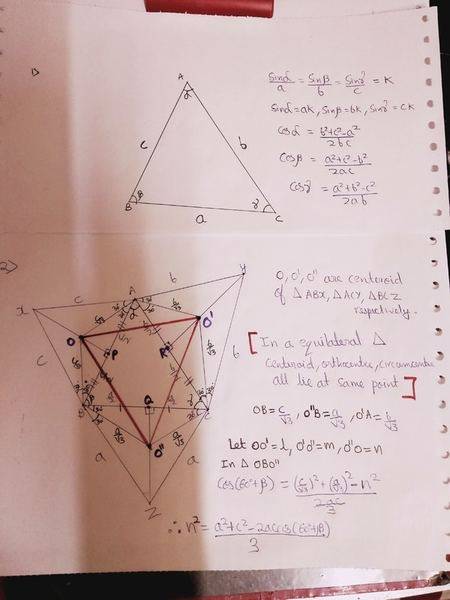 1)
A
α
c
b
β
B
a
γ
C
sinα/a = sinβ/b = sinγ/c = K
sinα = aK, sinβ = bK, sinγ = cK
cosα = b²+c²-a²/2bc
cosβ = a²+c²-b²/2ac
cosγ = a²+b²-c²/2ab
2)
X
c
A
b
Y
O
O'
P
R
c
b
B
Q
C
O''
a
a
Z
O, O', O'' are centeroid
of Δ ABX, Δ ACY, Δ BCZ
respectively.
[In a equilateral Δ
Centeroid, orthocentre, circumcentre
all lie at same point]
OB = c/√3, O''B = a/√3, O'A = b/√3
Let OO' = l, O'O'' = m, O''O = n
In Δ OBO''
cos(60°+β) = (c/√3)² + (a/√3)² - n²/2ac/3
∴ n² = a²+c²-2ac cos(60°+β)/3